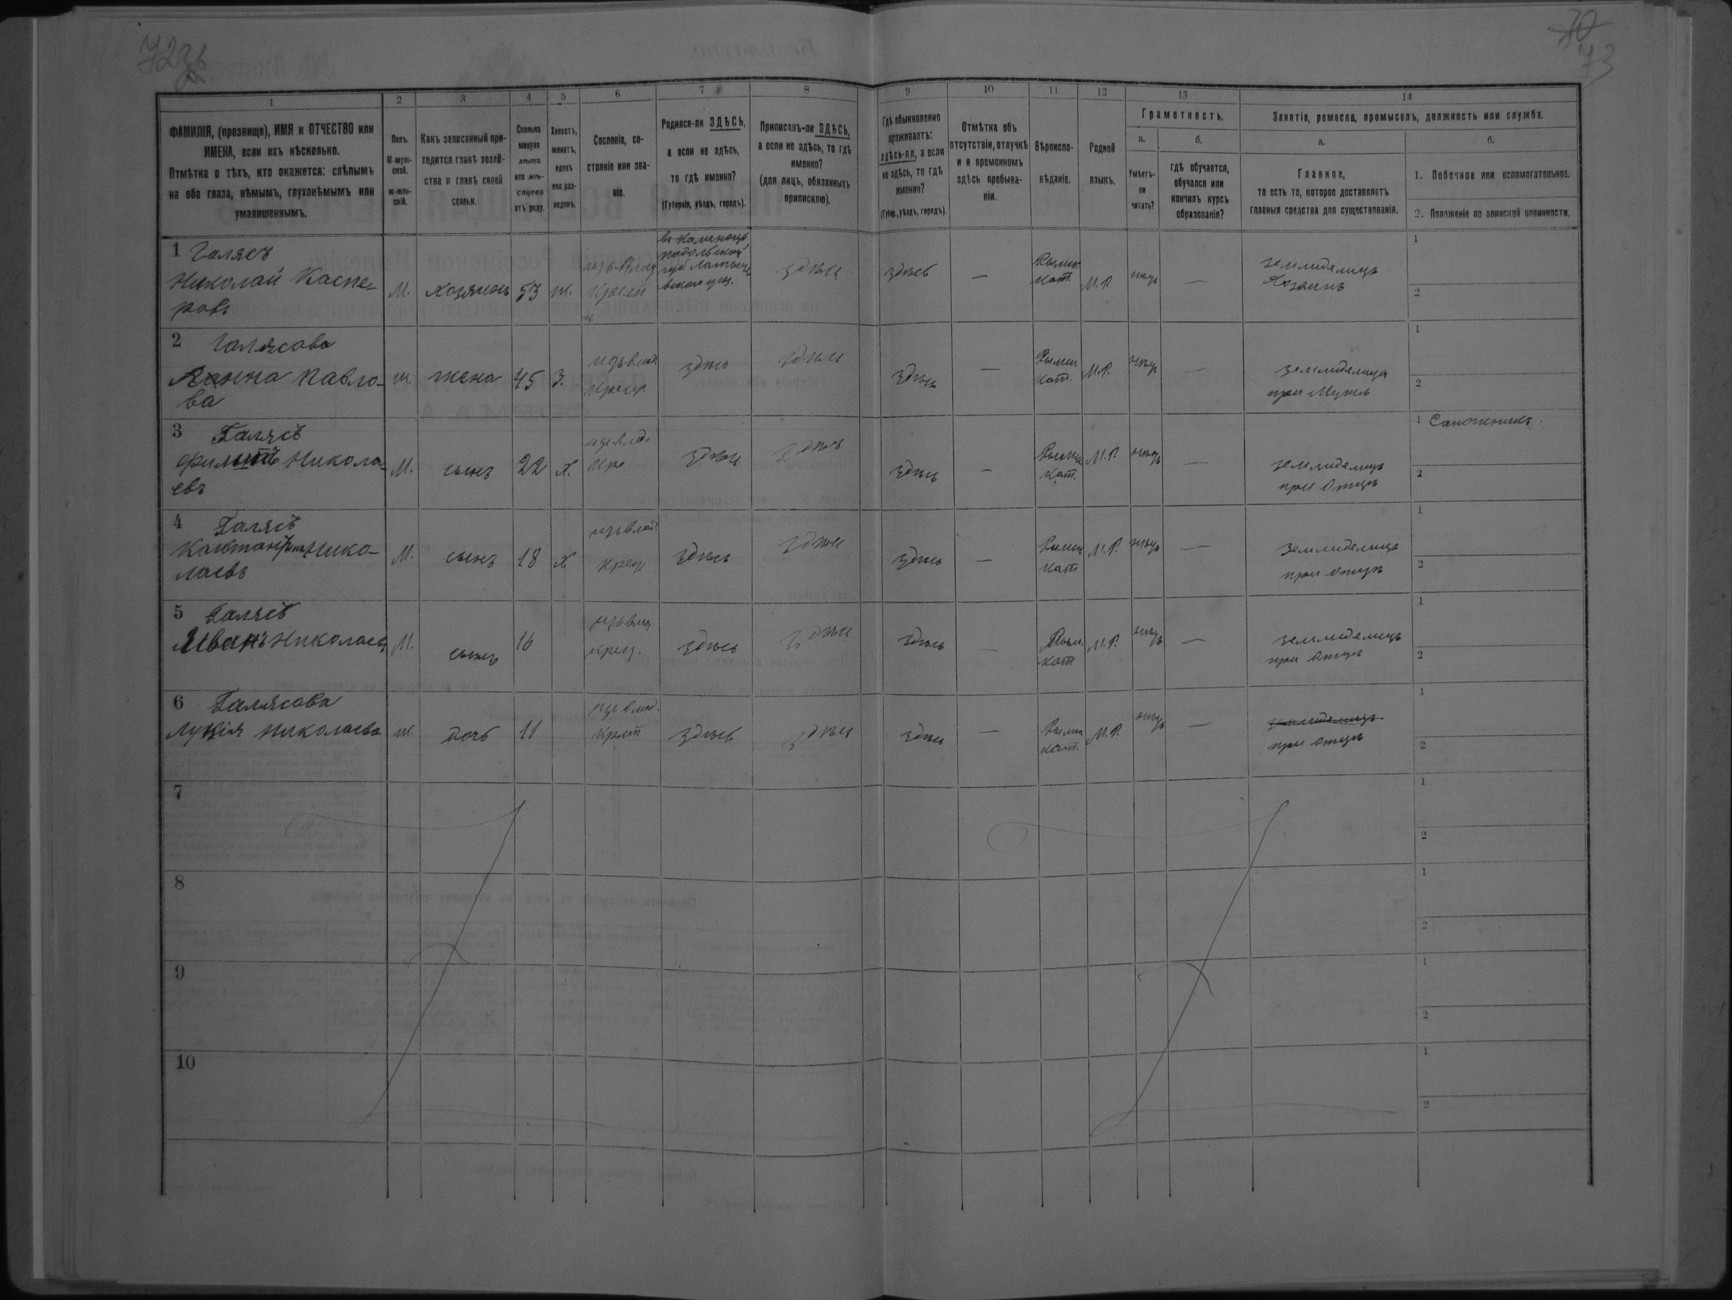 73
1
2
3
4
5
6
7
8
9
10
11
12
13
14
ФАМИЛІЯ, (прозвище), ИМЯ и ОТЧЕСТВО или
ИМЕНА, если ихъ нѣсколько.
Отмѣтка о тѣхъ, кто окажется: слѣпымъ
на оба глаза, нѣмымъ, глухонѣмымъ или
умалишеннымъ.
Полъ.
М-муж-
ской.
Ж-жен-
скій.
Какъ записанный при-
ходится главѣ хозяй-
ства и главѣ своей
семьи.
Сколько
минуло
лѣтъ
или мѣ-
сяцевъ
отъ роду.
Холостъ,
женатъ,
вдовъ
или раз-
веденъ.
Сословіе, со-
стояніе или зва-
ніе.
Родился-ли ЗДѢСЬ,
а если не здѣсь,
то гдѣ именно?
(Губернія, уѣздъ, городъ).
Приписанъ-ли ЗДѢСЬ,
а если не здѣсь, то гдѣ
именно?
(для лицъ, обязанныхъ
припискою).
Гдѣ обыкновенно
проживаетъ:
здѣсь-ли, а если
не здѣсь, то гдѣ
именно?
(Губерн., уѣздъ, городъ).
Отмѣтка объ
отсутствіи, отлучкѣ
и о временномъ
здѣсь пребыва-
ніи.
Вѣроиспо-
вѣданіе.
Родной
языкъ.
Грамотность.
а.
Умѣетъ-
ли
читать?
б.
Гдѣ обучается,
обучался или
кончилъ курсъ
образованія?
Занятіе, ремесло, промыселъ, должность или служба.
а.
Главное,
то есть то, которое доставляетъ
главныя средства для существованія.
б.
1. Побочное или вспомогательное.
2. Положеніе по воинской повинности.
1 Галясъ
Николай Каспе-
ровъ
М. хозяинъ 53 ж.
въ Каменецъ
подольской
здѣсь
здѣсь
—
Римск
Кат.
М.Р.
нѣтъ
—
земледелецъ
Хозяинъ
1
2
2 Галясова
Анна Павло-
ва
ж. жена 45 З.
изъ влад
крест.
здѣсь
здѣсь
здѣсь
—
Римск
Кат.
М.Р.
нѣтъ
—
земледелица
при Мужѣ
1
2
3 Галясъ
Филипъ Никола-
евъ
М. сынъ 22 х.
изъ влад.
кре
здѣсь
здѣсь
здѣсь
—
Римск
Кат.
М.Р.
нѣтъ
—
земледелецъ
при Отцѣ
1 Сапожникъ
2
4 Галясъ
Константинъ Нико-
лаевъ
М. сынъ 18 х
изъ влад.
крест
здѣсь
здѣсь
здѣсь
—
Римск
Кат
М.Р.
нѣтъ
—
земледелецъ
при отцѣ
1
2
5 Галясъ
Иванъ Николаевъ
М. сынъ 16
крест.
здѣсь
здѣсь
здѣсь
Римск
Кат
М.Р.
нѣтъ
—
земледелецъ
при Отцѣ
1
2
6 Галясова
Луція Николаева
ж. дочь 11
изъ влад.
крест
здѣсь
здѣсь
здѣсь
—
Римск
Кат.
М.Р.
нѣтъ
—
земледелецъ
при отцѣ
1
2
7
1
2
8
1
2
9
1
2
10
1
2